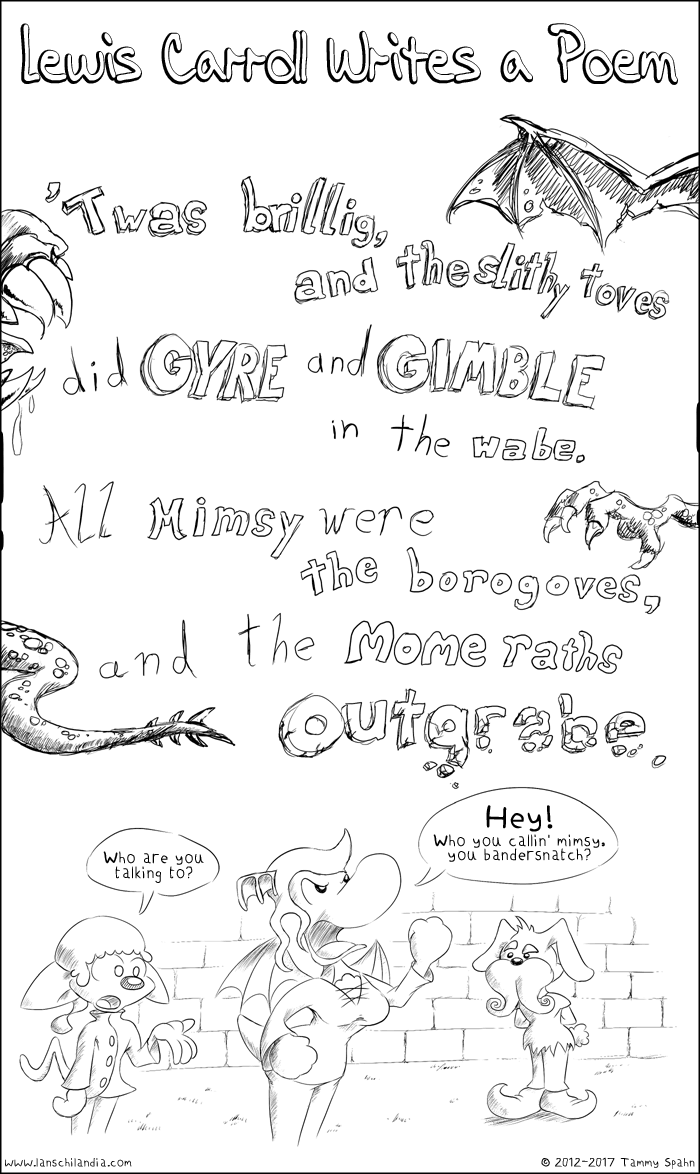 Lewis Carroll Writes a Poem
'Twas brillig,
and the slithy toves
did GYRE and GIMBLE
in the wabe.
All Mimsy were
the borogoves,
and the Mome raths
outgrabe.
Who are you
talking to?
Hey!
Who you callin' mimsy,
you bandersnatch?
www.lanschilandia.com
© 2012-2017 Tammy Spahn